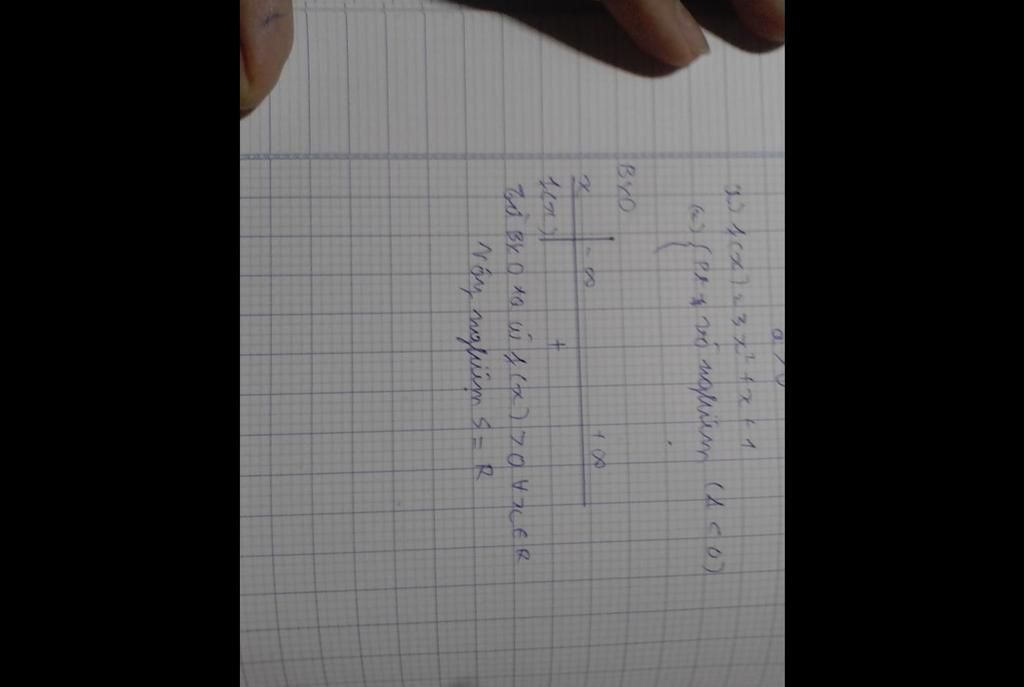 a > 0
2) f(x) = 3x² + x + 1
(=) { PT vô nghiệm (Δ < 0)
BXD
x -∞ +∞
f(x) +
Từ BXD ta có f(x) > 0 ∀x ∈ R
Vậy nghiệm S = R